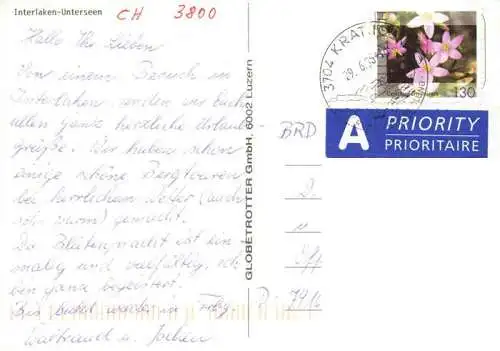 Interlaken-Unterseen
CH 3800
Hallo Ihr Lieben
Von einem Besuch in
Interlaken senden wir Euch
allen ganz herzliche Urlaubs-
grüße. Wir haben schon
einige schöne Bergtouren
bei herrlichem Wetter (auch
sehr warm) gemacht.
Die Blütenpracht ist ein-
malig und vielfältig, ich
bin ganz begeistert.
Bis bald wieder in
Waltraudt u. Jochen
GLOBETROTTER GmbH, 6002 Luzern
3704 KRATT
130
A PRIORITY
PRIORITAIRE
BRD
D